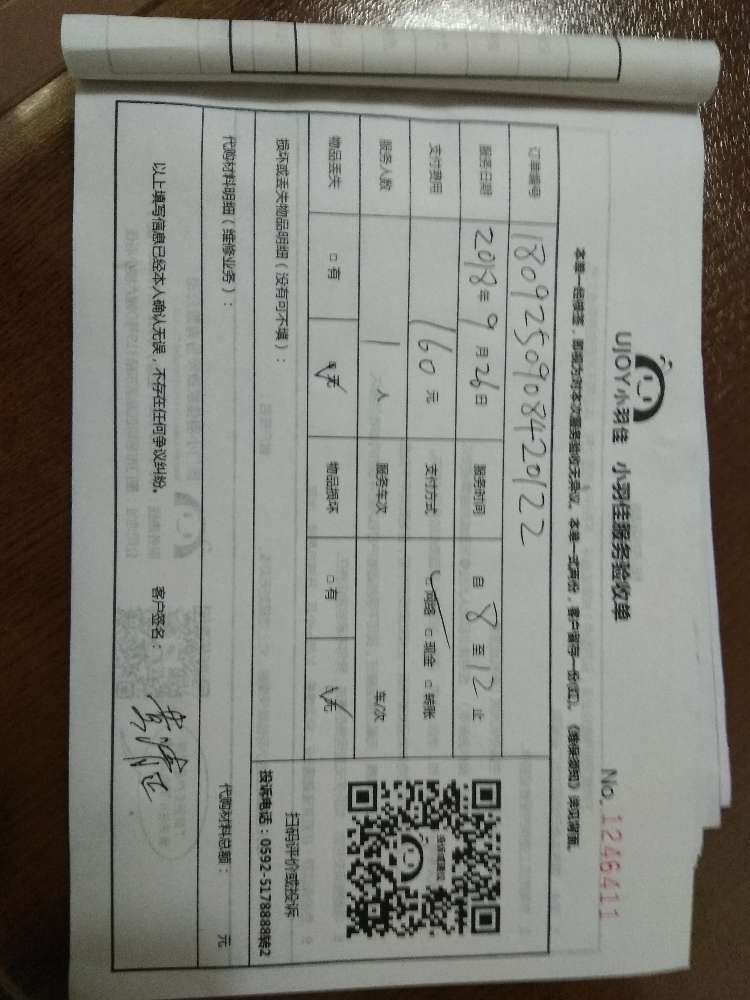 UJOY小羽佳 小羽佳服务验收单
No. 1246411
本单一经签签，即视为对本次服务验收无异议。本单一式两份，客户留存一份(红)。《维保须知》详见背面。
订单编号 1809250908420122
服务日期 2018年9月26日 服务时间 自8至12止
支付费用 160元 支付方式 ☑网络 □现金 □转账
服务人数 1人 服务车次 车/次
物品丢失 □有 ☑无 物品损坏 □有 ☑无
损坏或丢失物品明细（没有可不填）：
扫码评价或投诉
投诉电话：0592-5178888转2
代购材料明细（维修业务）： 代购材料总额： 元
以上填写信息已经本人确认无误，不存在任何争议纠纷。 客户签名：